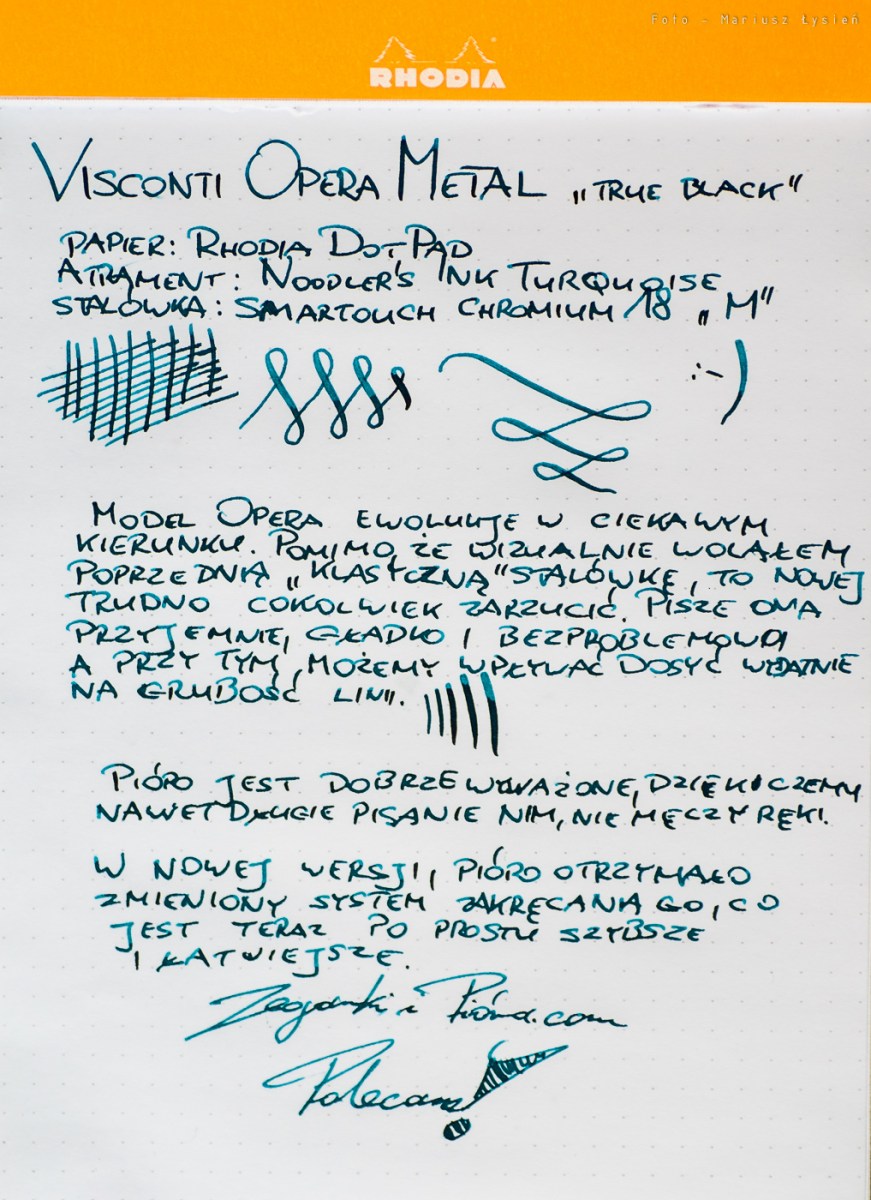 Foto - Mariusz Łysień
RHODIA
VISCONTI OPERA METAL „TRUE BLACK"
PAPIER: RHODIA DOTPAD
ATRAMENT: NOODLER'S INK TURQUOISE
STALÓWKA: SMARTOUCH CHROMIUM 18 „M"
:-)
MODEL OPERA EWOLUUJE W CIEKAWYM
KIERUNKU. POMIMO, ŻE WIZUALNIE WOLAŁEM
POPRZEDNIĄ „KLASYCZNĄ" STALÓWKĘ, TO NOWEJ
TRUDNO COKOLWIEK ZARZUCIĆ. PISZE ONA
PRZYJEMNIE, GŁADKO I BEZPROBLEMOWO
A PRZY TYM, MOŻEMY WPŁYWAĆ DOSYĆ WYDATNIE
NA GRUBOŚĆ LINII.
PIÓRO JEST DOBRZE WYWAŻONE, DZIĘKI CZEMU
NAWET DŁUGIE PISANIE NIM, NIE MĘCZY RĘKI.
W NOWEJ WERSJI, PIÓRO OTRZYMAŁO
ZMIENIONY SYSTEM ZAKRĘCANIA GO, CO
JEST TERAZ PO PROSTU SZYBSZE
I ŁATWIEJSZE.
Zegarki i Pióra.com
Polecam!